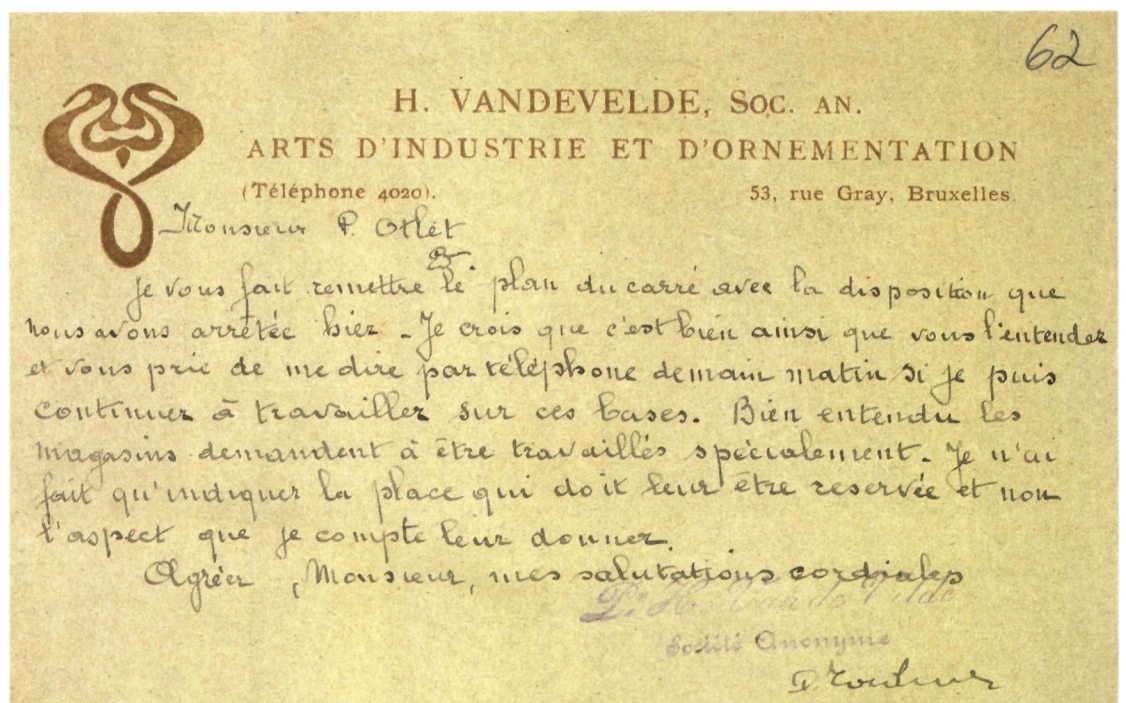 62
H. VANDEVELDE, SOC. AN.
ARTS D'INDUSTRIE ET D'ORNEMENTATION
(Téléphone 4020). 53, rue Gray, Bruxelles.
Monsieur P. Otlet
Je vous fait remettre le plan du carré avec la disposition que
nous avons arrêtée hier - Je crois que c'est bien ainsi que vous l'entendez
et vous prie de me dire par téléphone demain matin si je puis
continuer à travailler sur ces bases. Bien entendu les
magasins demandent à être travaillés spécialement. Je n'ai
fait qu'indiquer la place qui doit leur être reservée et non
l'aspect que je compte leur donner.
Agréer, Monsieur, mes salutations cordiales
Pr H. Van de Velde
Société Anonyme